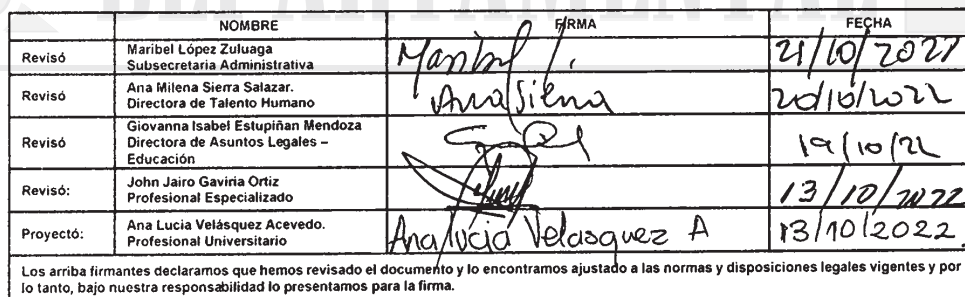 NOMBRE FIRMA FECHA
Revisó Maribel López Zuluaga
Subsecretaria Administrativa Maribel 21/10/2022
Revisó Ana Milena Sierra Salazar.
Directora de Talento Humano Ana Sierra 20/10/2022
Revisó Giovanna Isabel Estupiñan Mendoza
Directora de Asuntos Legales –
Educación 19/10/22
Revisó: John Jairo Gaviria Ortiz
Profesional Especializado 13/10/2022
Proyectó: Ana Lucia Velásquez Acevedo.
Profesional Universitario Ana Lucia Velasquez A 13/10/2022
Los arriba firmantes declaramos que hemos revisado el documento y lo encontramos ajustado a las normas y disposiciones legales vigentes y por
lo tanto, bajo nuestra responsabilidad lo presentamos para la firma.